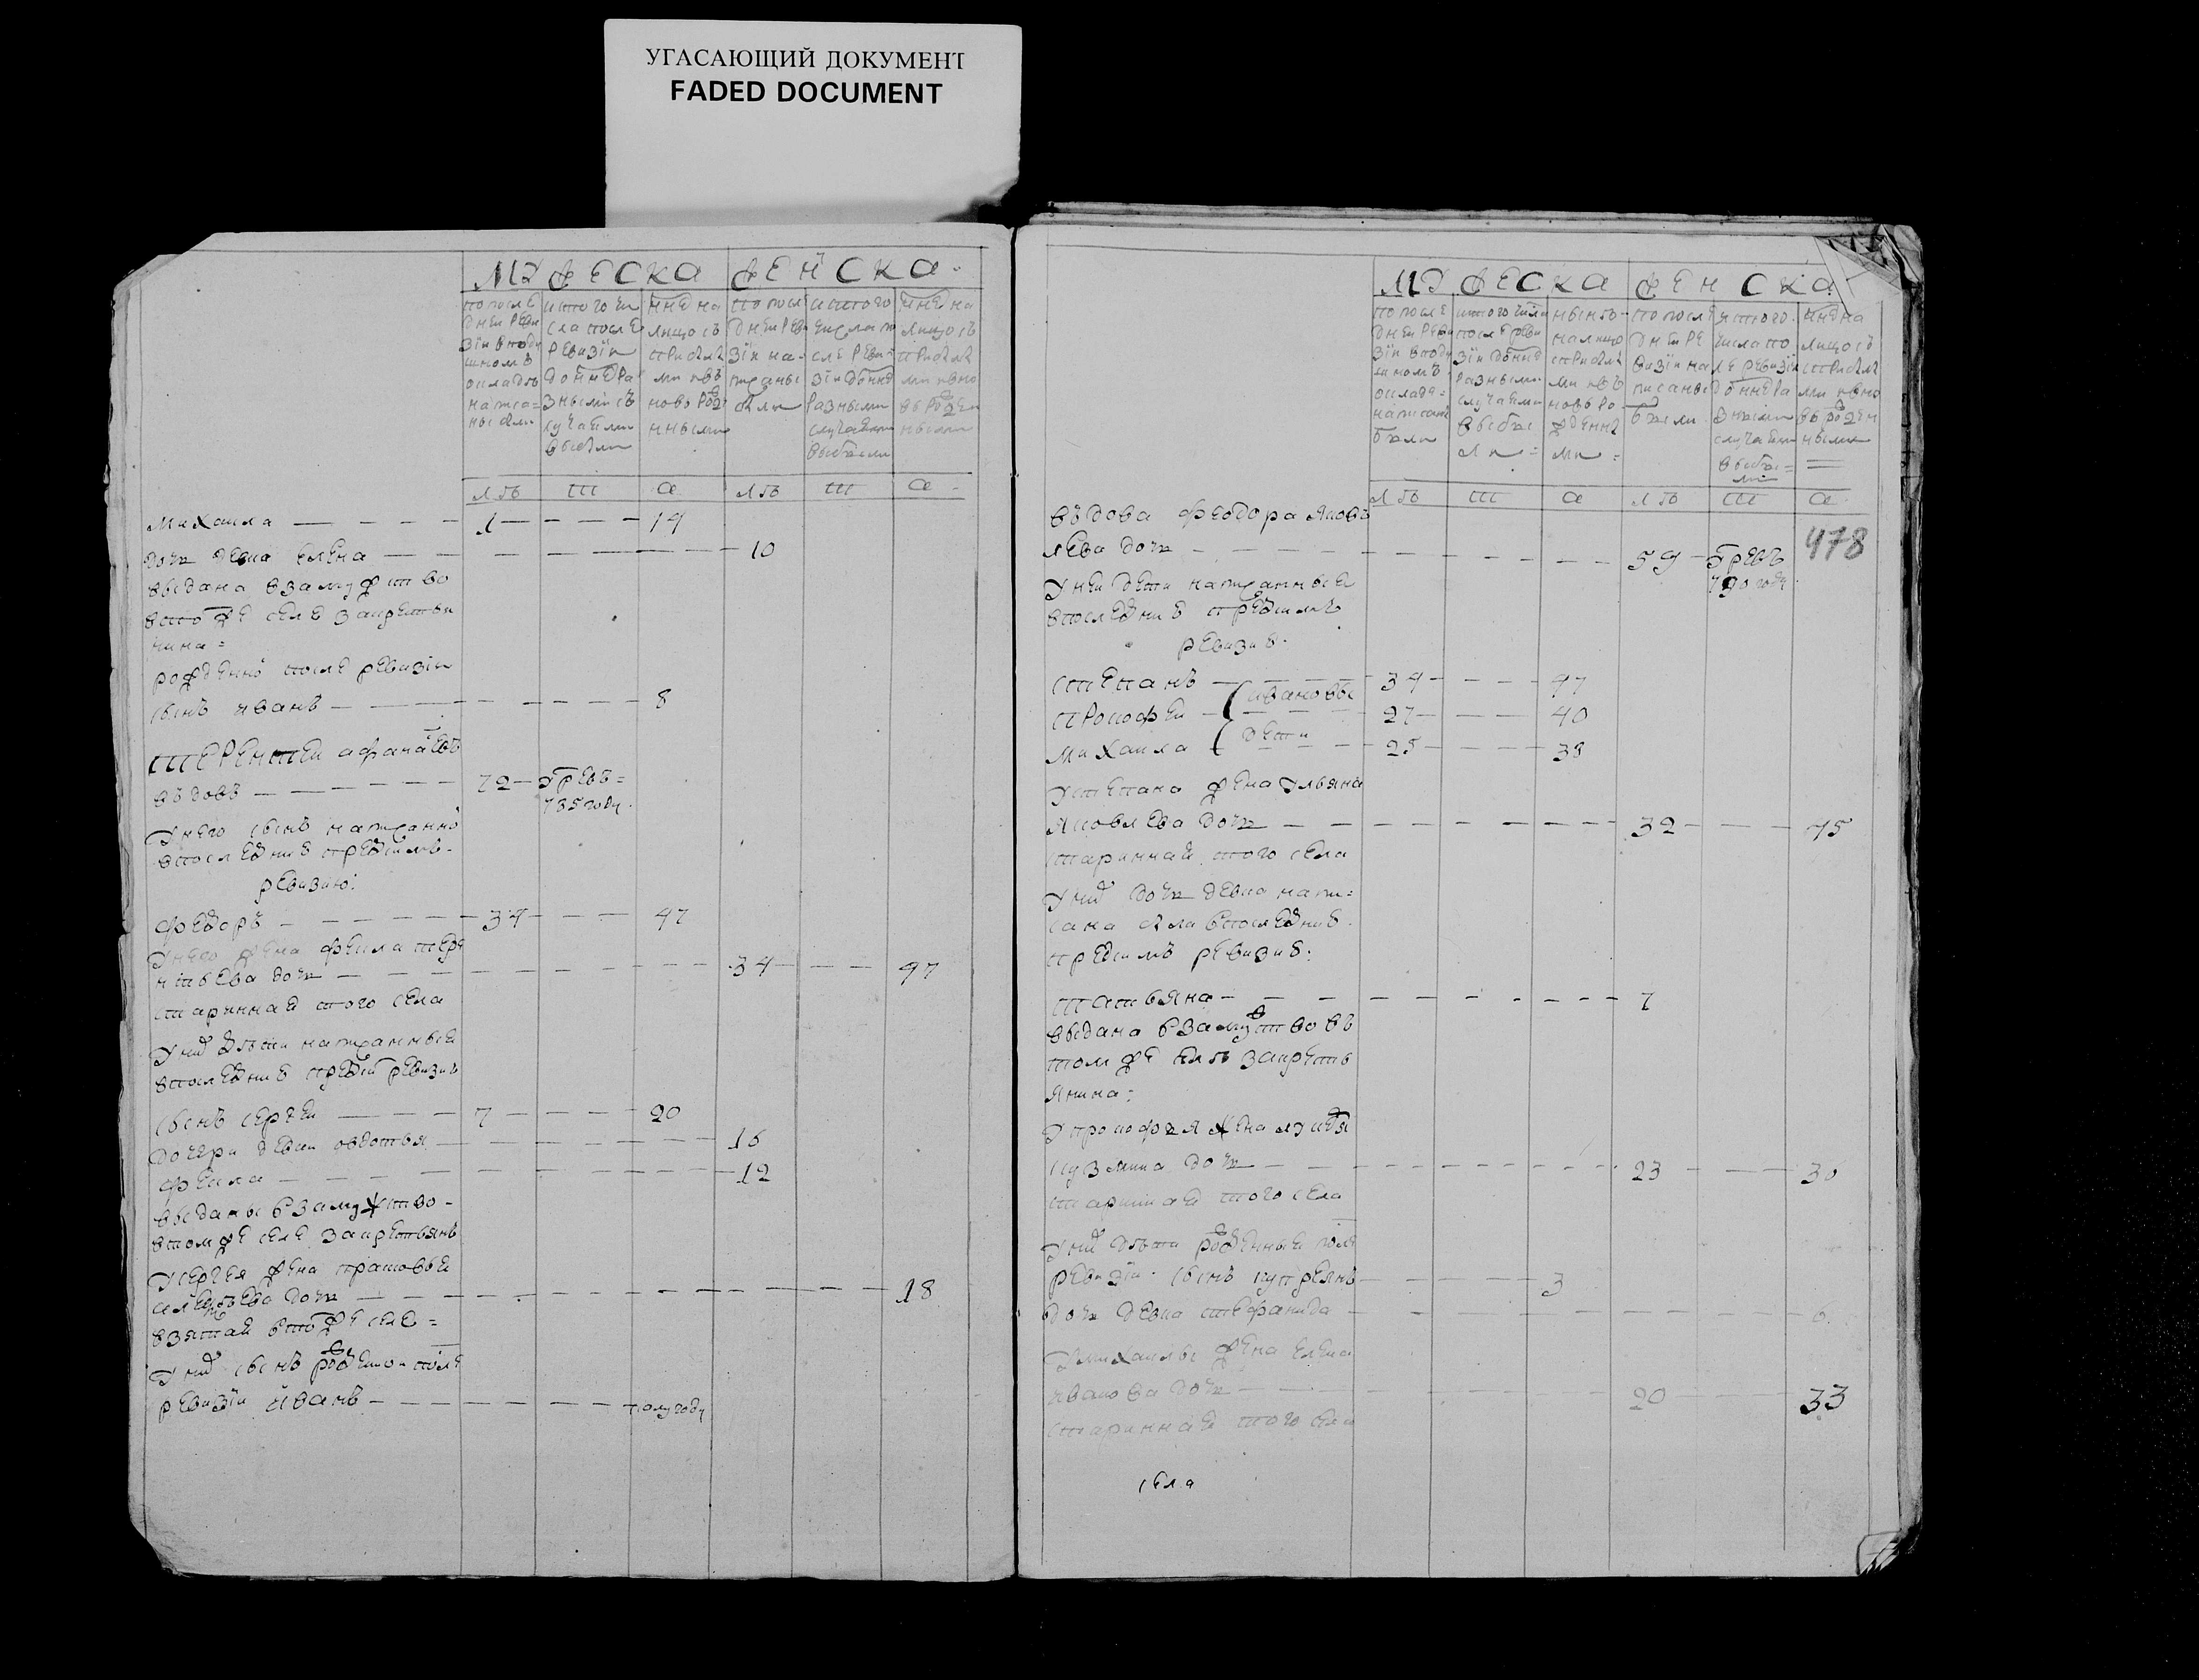 УГАСАЮЩИЙ ДОКУМЕНТ
FADED DOCUMENT
МУЖЕСКА ЖЕНСКА
по после
дней реви
зіи въ поду
шномъ
окладѣ
написа=
ны были
ис того чи
сла после
ревизіи
до нне ра
зными слу
чаями
выбыли
нне на
лицо съ
прибылы
ми и въ
новь рож
нными
по после
дней реви
зіи на-
писаны
были
ис того
числа по
сле реви
зіи до нне
разными
случаями
выбыли
нне на
лицо съ
прибылы
ми и вно
вь рожде
ными
лѣ т а лѣ т а
михаила — 1 — 14
дочь девка елена — 10
выдана взамужство
втомже селе закрестья
нина=
рожденной после ревизіи
сынъ иванъ — 8
терентей афанасьевъ
въдовъ — 72 — умре въ=
785 году.
унего сынъ написанной
впоследнюю предсимъ-
ревизию:
федоръ — 34 — 47
унего жена фекла тере
нтьева дочь — 34 — 47
старинная того села
унихъ дѣти написанные
впоследнюю предсимъ ревизию
сынъ сергеи — 7 — 20
дочери девки овдотья — 16
фекла — 12
выданы взамужство-
втомже селе закрестьянъ
усергея жена прасковья
алексѣева дочь — 18
взятая втомже селе=
унихъ сынъ рожденной после
ревизіи иванъ — полугоду
МУЖЕСКА ЖЕНСКА
по после
дней реви
зіи въ поду
шномъ
окладе=
написаны
были
ис того числа
после реви
зіи до нне
разными
случаями
выбы
ли=
ныне-
налицо
с прибылы
ми и въ
новь ро-
жденны
ми=
по после
дней ре
визіи на
писаны
были
ис того
числа по
сле ревизіи
до нне ра
зными
случаями
выбы=
ли
нне на
лицо съ
прибылы
ми и вно
вь рожден
ными
лѣ т а лѣ т а
478
въдова федора яков
лева дочь — 59 — умре въ
790 году
уней дети написанные
впоследнюю предсимъ
ревизию.
степанъ — 34 — 47
ивановы
прокофеи — 27 — 40
дети
михаила — 25 — 38
устепана жена ульяна
яковлева дочь — 32 — 45
старинная того села
унихъ дочь девка напи=
сана была впоследнюю
предсимъ ревизию:
татьяна — 7
выдана взамужство въ
томже селѣ закресть
янина:
упрокофья жена лукерья
кузмина дочь — 23 — 30
старинная того села
унихъ дѣти рожденные после
ревизіи. сынъ куприянъ — 3
дочь девка степанида
умихаилы жена елена
иванова дочь — 20 — 33
старинная того села
села